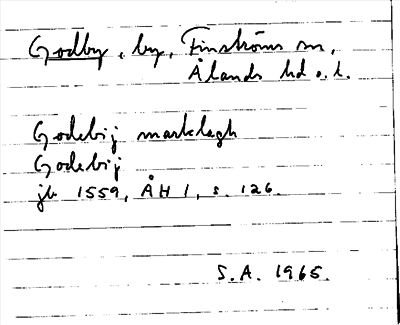 Godby, by, Finströms sn,
Ålands hd o. l.
Godebij marklagh
Godebij
jb 1559, ÅH 1, s. 126.
S.A. 1965.